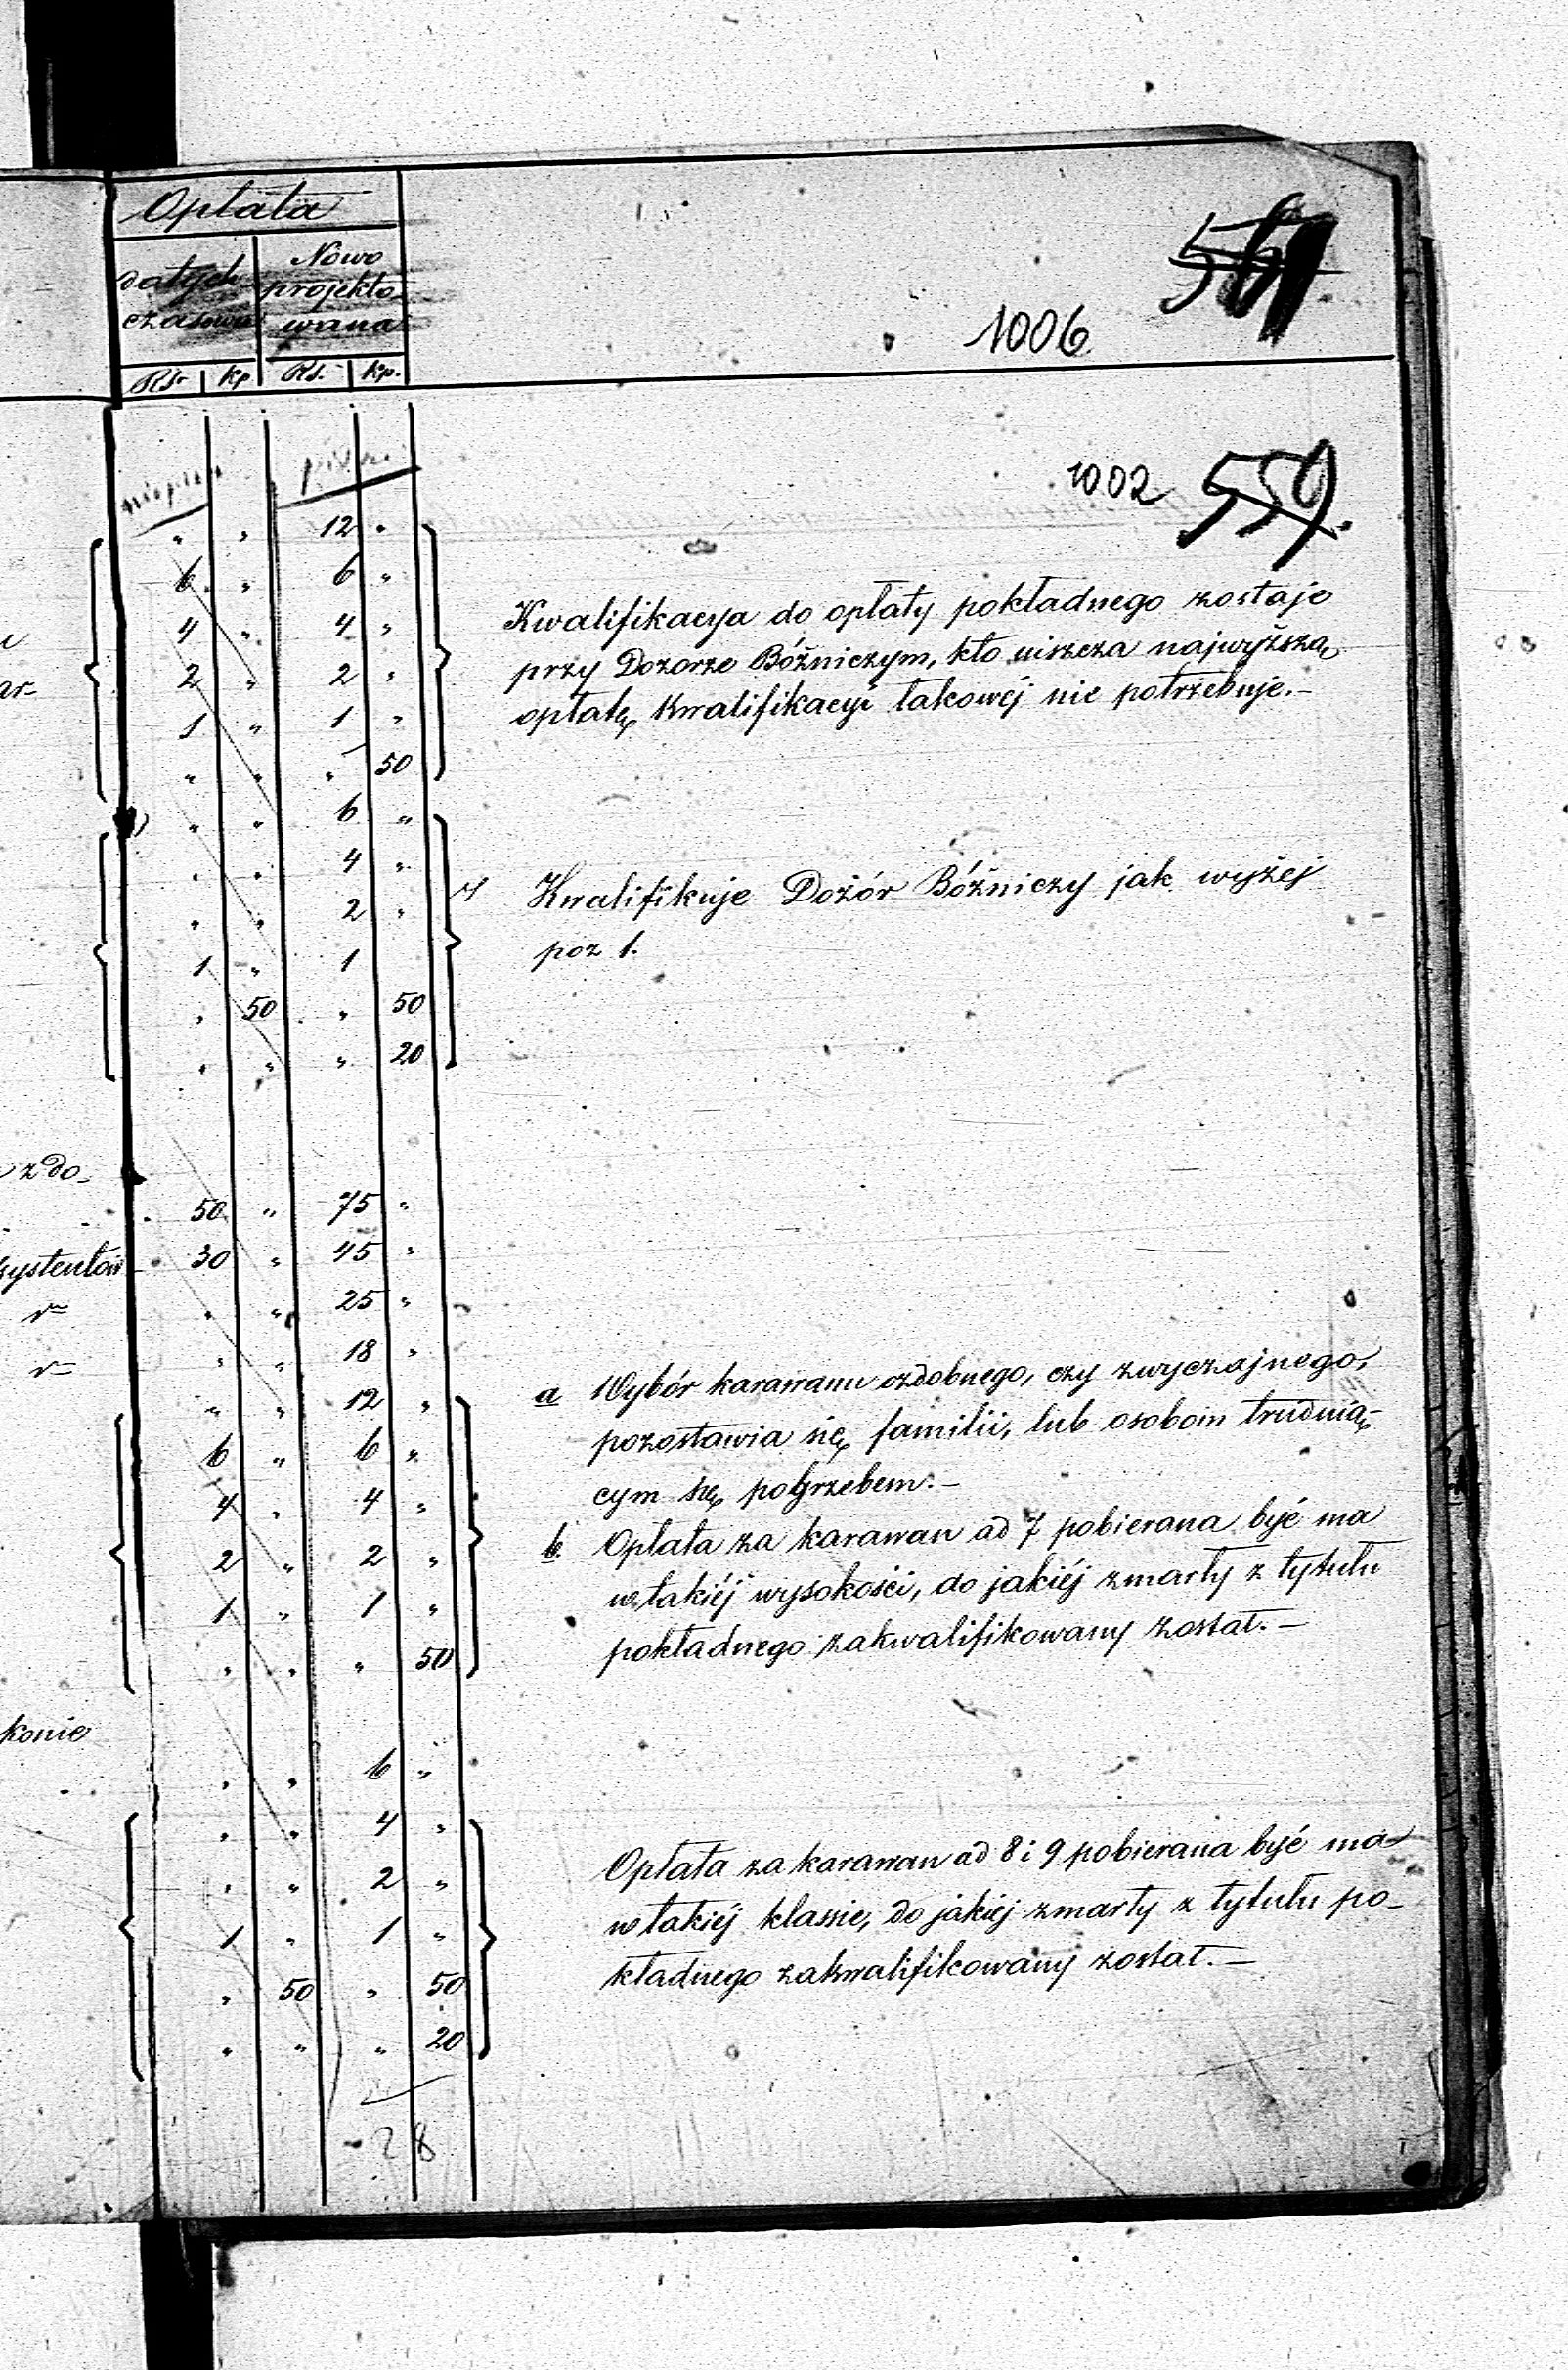 Opłata
Nowo
dotych projekto-
czasowa wana
Rs. kp Rs. kp.
1006
1002 559.
" " 12 "
6 " 6 "
4 " 4 "
2 " 2 "
1 " 1 "
" " " 50
Kwalifikacya do opłaty pokładnego zostaje
przy Dozorze Bóżniczym, kto uiszcza najwyższą
opłatę, kwalifikacyi takowéj nie potrzebuje.—
" " 6 "
" " 4 "
" " 2 "
1 " 1
" 50 " 50
" " " 20
Kwalifikuje Dozór Bóżniczy jak wyżej
poz 1.
z do-
50 " 75 "
systentów 30 " 45 "
" " 25 "
" " 18 "
" " 12 "
6 " 6 "
4 " 4 "
2 " 2 "
1 " 1 "
" " " 50
a Wybór karawanu ozdobnego, czy zwyczajnego,
pozostawia się familii, lub osobom trudnią-
cym się pogrzebem.—
b. Opłata za karawan ad 7 pobierana być ma
w takiéj wysokości, do jakiéj zmarły z tytułu
pokładnego zakwalifikowany został.—
konie
" " 6 "
" " 4 "
" " 2 "
1 " 1 "
" 50 " 50
" " " 20
Opłata za karawan ad 8 i 9 pobierana być ma
w takiéj klassie, do jakiéj zmarły z tytułu po-
kładnego zakwalifikowany został.—
28